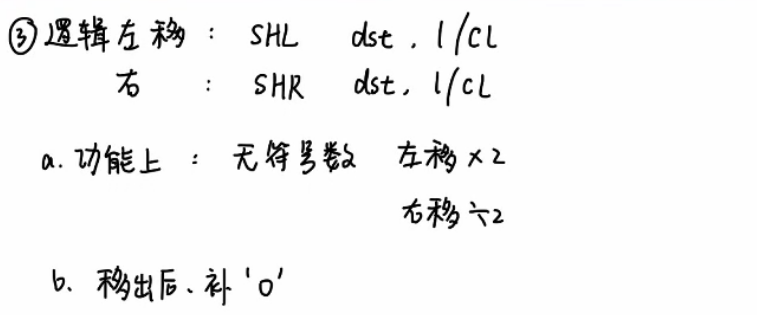 ③逻辑左移: SHL dst, 1/CL
右: SHR dst, 1/CL
a. 功能上: 无符号数 左移×2
右移÷2
b. 移出后、补'0'